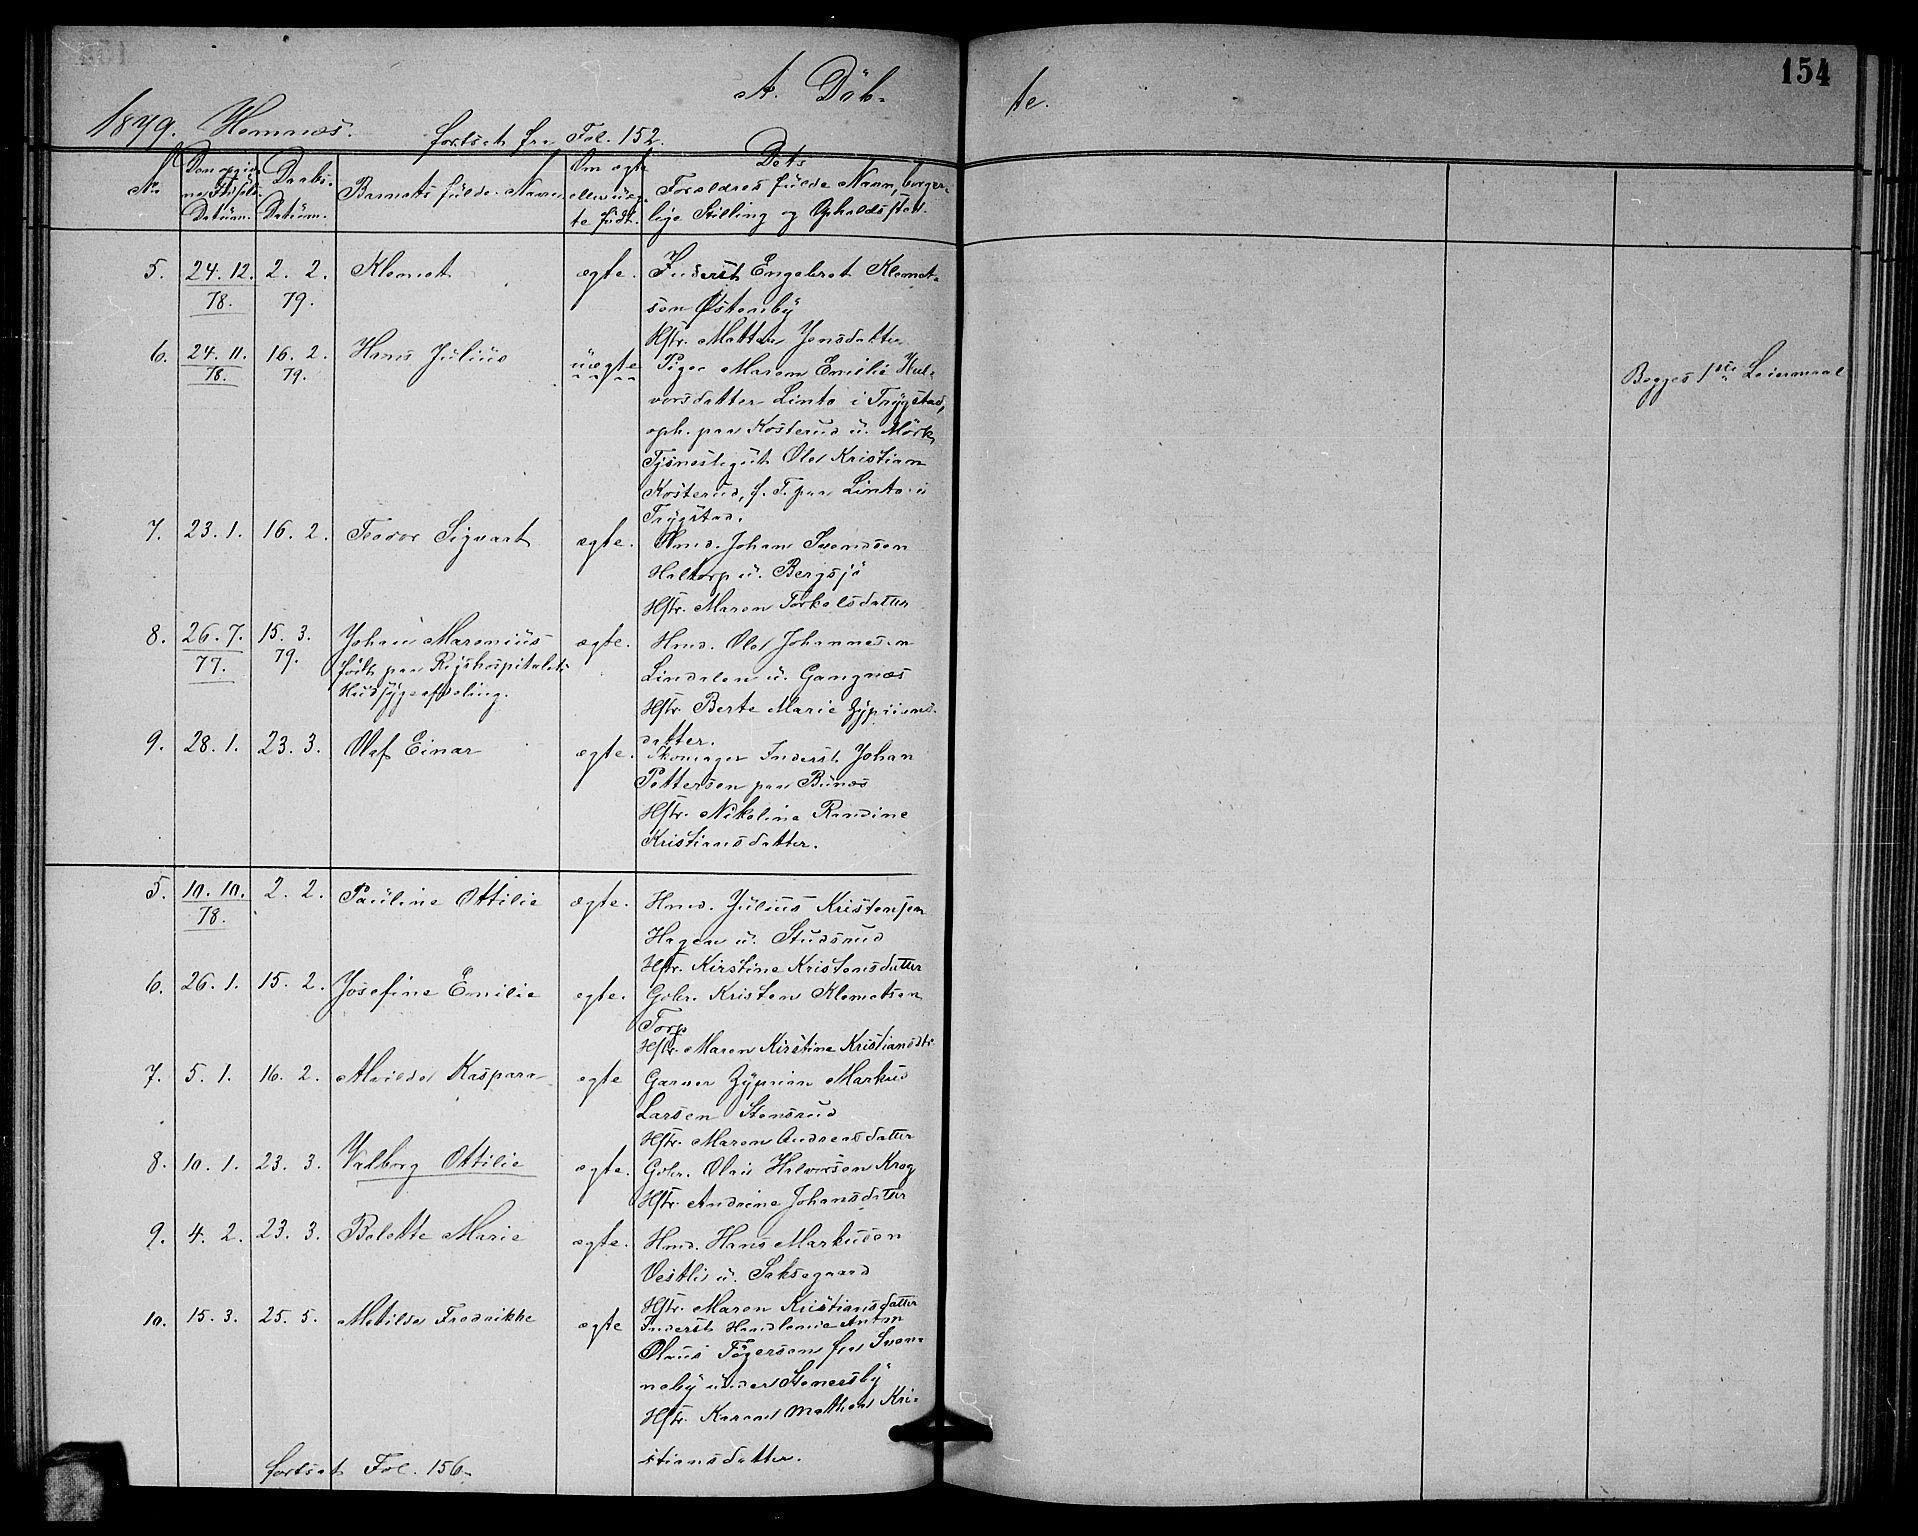 154
A. Döb- te.
1879. Hemnæs. fortsat fra Fol. 152.
No. Den opgiv- ne Fødsels- Datüm. Daabs- Datüm. Barnets fülde Navn Om ægte eller uæg- te født. Dets Forældres fülde Navn, borger-
lige Stilling og Opholdssted.
5. 24. 12. 78. 2. 2. 79. Klemet ægte. Inderst Engebret Klemet-
sen Østenby
Hstr. Mathea Jensdatter
6. 24. 11. 78. 16. 2. 79. Hans Julius üægte Pige Maren Emilie Hal-
vorsdatter Linto i Trygstad,
oph. paa Kosterud u. Mörk,
Tjenestegüt Ole Kristian
Kosterud, f. T. paa Linto i
Trygstad.
Begges 1ste Leiermaal
7. 23. 1. 16. 2. Teodor Sigvart ægte. Hmd. Johan Svendsen
Haltorp u. Bergsjö
Hstr. Maren Torkelsdatter
8. 26. 7. 77. 15. 3. 79. Johan Marenius ægte. Hmd. Ole Johannesen
født paa Rigshospitalets
Hudsygeafdeling.
Lindalen u. Gangnæs
Hstr. Berte Marie Zypriens-
datter.
9. 28. 1. 23. 3. Olaf Einar ægte. Skomager Inderst Johan
Pettersen paa Bünæs
Hstr. Nikoline Randine
Kristiansdatter.
5. 10. 10. 78. 2. 2. Paüline Ottilie ægte. Hmd. Julius Kristensen
Hagen u. Studsrud
Hstr. Kirstine Kristensdatter
6. 26. 1. 15. 2. Josefine Emilie ægte. Gbr. Kristen Klemetsen
Torp
Hstr. Maren Kirstine Kristiansdtr
7. 5. 1. 16. 2. Alvilde Kaspara ægte Garver Zyprian Markus
Larsen Stensrud
Hstr. Maren Andreasdatter
8. 10. 1. 23. 3. Valborg Ottilie ægte. Gbr. Olaus Halvorsen Krog
Hstr. Andrine Johansdatter
9. 4. 2. 23. 3. Bolette Marie ægte. Hmd. Hans Markusen
Vestli u. Saksegaard
Hstr. Maren Kristiansdatter
10. 15. 3. 25. 5. Matilde Fredrikke ægte Inderst Anton
Olaus Tøgersen fra Sven-
neby under Homersby
Hstr. Karen Mathea Kri-
stiansdatter.
fortsat Fol. 156.